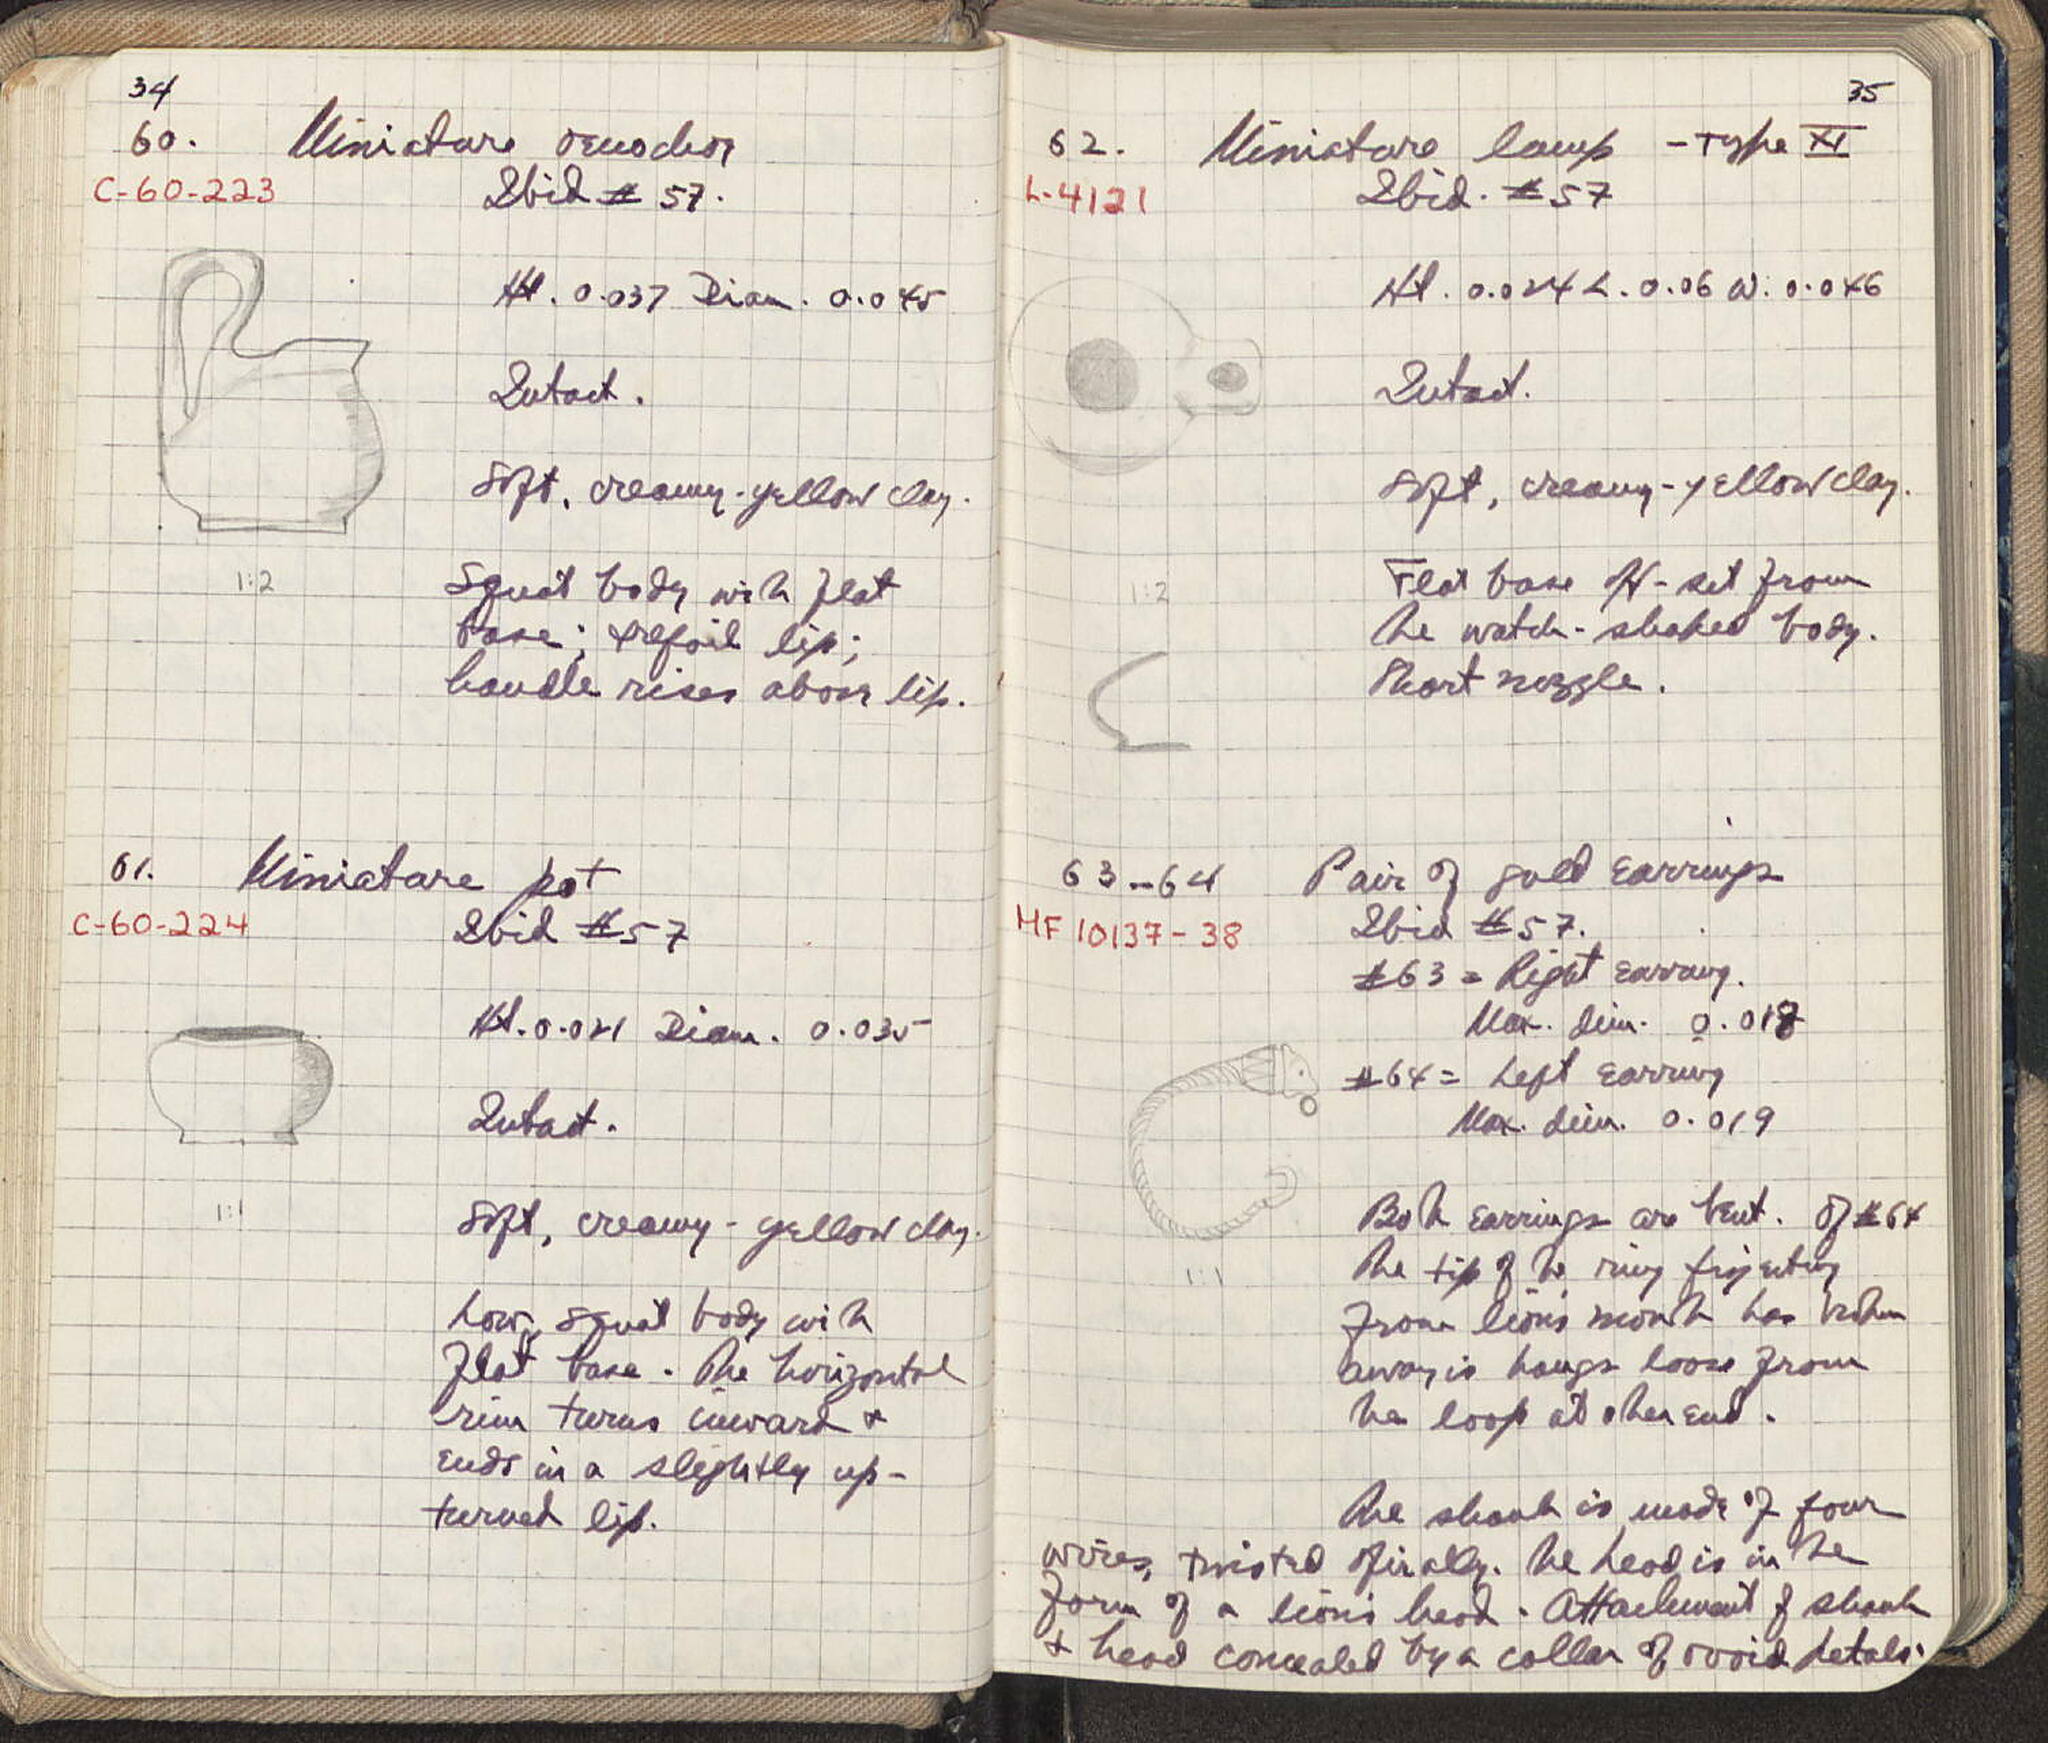 34
60. Miniature oenochoe
C-60-223 Ibid # 57.
Ht. 0.037 Diam. 0.045
Intact.
Soft, creamy-yellow clay.
1:2
Squat body with flat
base; trefoil lip;
handle rises above lip.
61. Miniature pot
C-60-224 Ibid #57
Ht. 0.021 Diam. 0.035
Intact.
1:1
Soft, creamy-yellow clay.
Low, squat body with
flat base. The horizontal
rim turns inward &
ends in a slightly up-
turned lip.
35
62. Miniature lamp - Type XI
L-4121 Ibid. #57
Ht. 0.024 L. 0.06 W. 0.046
Intact.
Soft, creamy-yellow clay.
1:2
Flat base off-set from
the watch-shaped body.
Short nozzle.
63-64 Pair of gold earrings
MF 10137-38 Ibid #57.
#63 = Right earring.
Max. dim. 0.018
#64 = Left earring
Max. dim. 0.019
Both earrings are bent. Of #64
1:1
the tip of the ring projecting
from lion's mouth has broken
away; hangs loose from
the loop at other end.
The shank is made of four
wires, twisted spirally. The head is in the
form of a lion's head. Attachment of shank
& head concealed by a collar of ovoid petals.